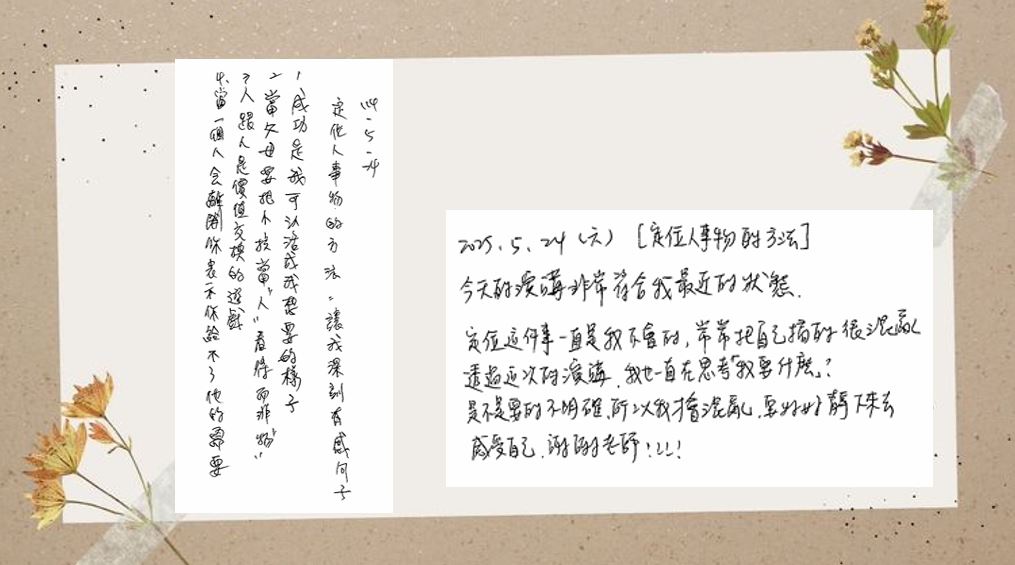 114.5.24
定位人事物的方法。讓我深刻有感句子
1.成功是我可以活成我想要的樣子
2.當父母要把小孩當"人"看待而非"物"
3.人跟人是價值交換的遊戲
4.當一個人会離開你表示你給不了他的需要
2025.5.24(六) [定位人事物的方法]
今天的演講非常符合我最近的狀態.
定位這件事一直是我不會的,常常把自己搞的很混亂
透過這次的演講,我也一直在思考「我要什麼」?
是不是要的不明確,所以我才會混亂,要好好靜下來去
感受自己.謝謝老師!!!!